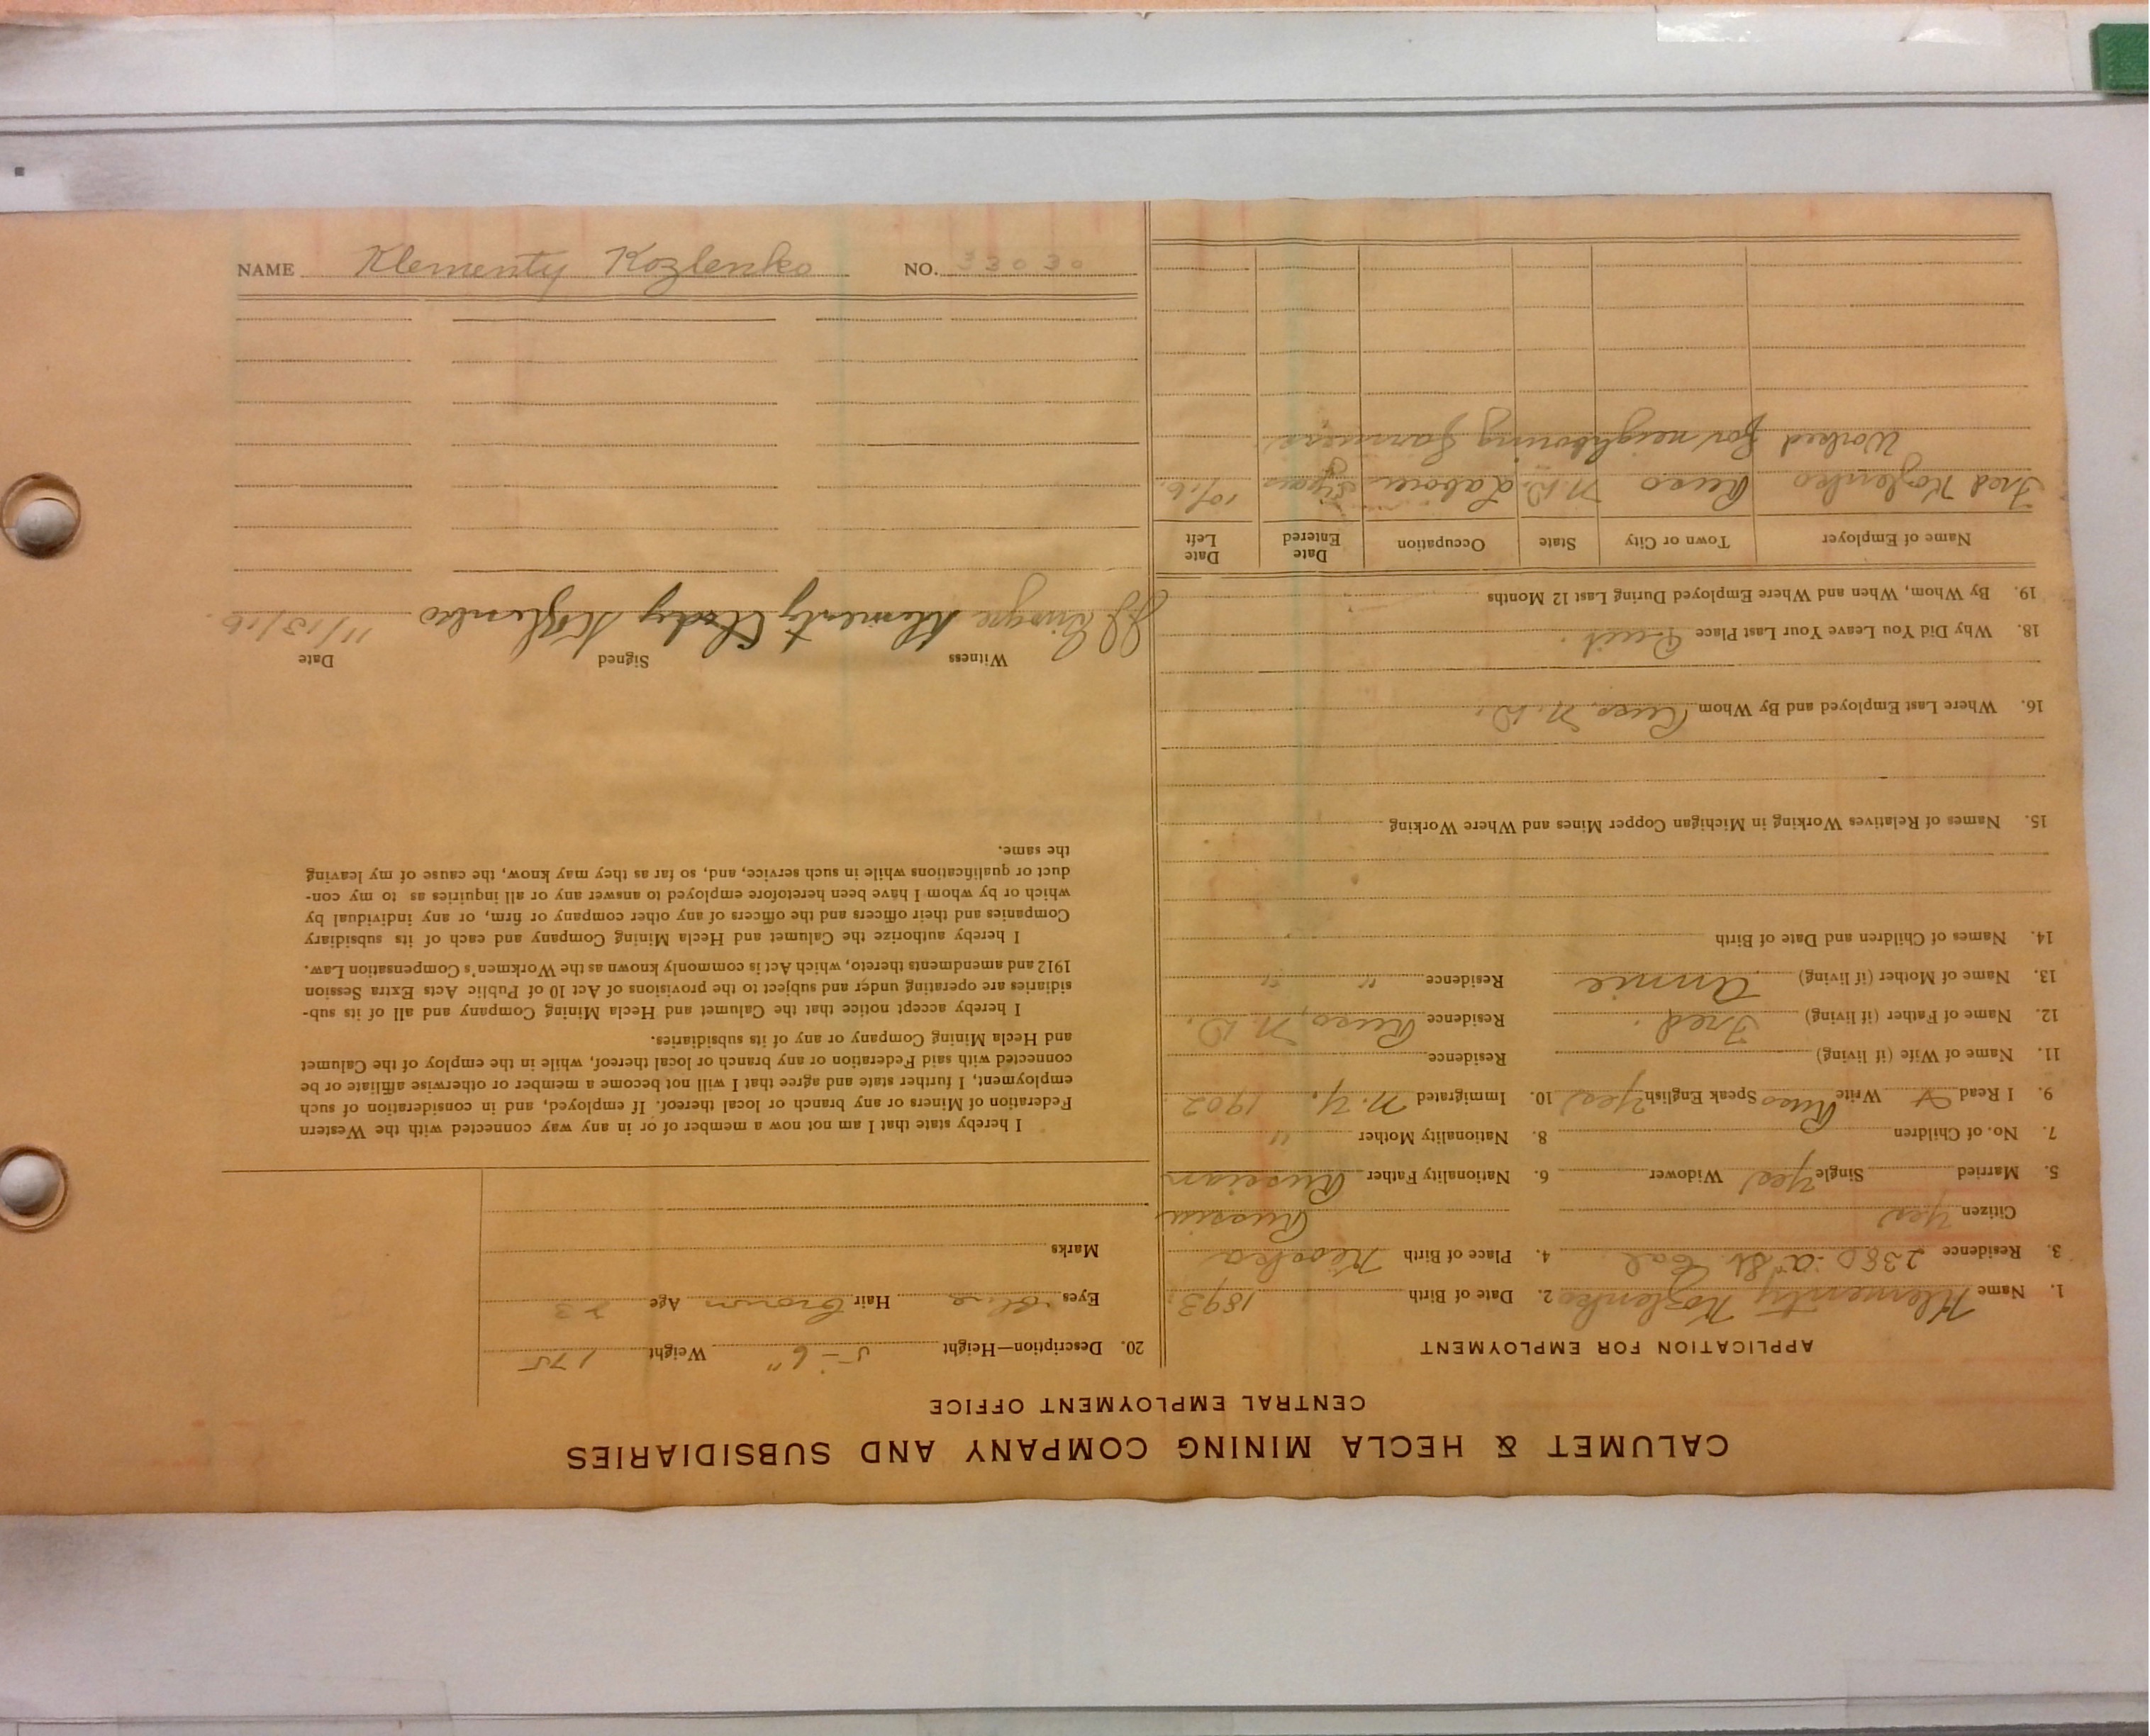 CALUMET & HECLA MINING COMPANY AND SUBSIDIARIES
CENTRAL EMPLOYMENT OFFICE
APPLICATION FOR EMPLOYMENT
1. Name Klementy Kozlenko 2. Date of Birth 1893
3. Residence 2380 - a" St. Cal 4. Place of Birth
Citizen Yes Russia
5. Married Single Yes Widower 6. Nationality Father Russian
7. No. of Children 8. Nationality Mother "
9. I Read & Write Russ Speak English Yes 10. Immigrated N.Y. 1902
11. Name of Wife (if living) Residence
12. Name of Father (if living) Fred. Residence Ruso, N.D.
13. Name of Mother (if living) Annie Residence " "
14. Names of Children and Date of Birth
15. Names of Relatives Working in Michigan Copper Mines and Where Working
16. Where Last Employed and By Whom Ruso, N.D.
18. Why Did You Leave Your Last Place Quit.
19. By Whom, When and Where Employed During Last 12 Months
Name of Employer Town or City State Occupation Date Entered Date Left
Fred Kozlenko Ruso N.D. Laborer years 10/16.
Worked for neighboring farmers.
20. Description—Height 5-6" Weight 175
Eyes Blue Hair Brown Age 23
Marks
I hereby state that I am not now a member of or in any way connected with the Western
Federation of Miners or any branch or local thereof. If employed, and in consideration of such
employment, I further state and agree that I will not become a member or otherwise affiliate or be
connected with said Federation or any branch or local thereof, while in the employ of the Calumet
and Hecla Mining Company or any of its subsidiaries.
I hereby accept notice that the Calumet and Hecla Mining Company and all of its sub-
sidiaries are operating under and subject to the provisions of Act 10 of Public Acts Extra Session
1912 and amendments thereto, which Act is commonly known as the Workmen's Compensation Law.
I hereby authorize the Calumet and Hecla Mining Company and each of its subsidiary
Companies and their officers and the officers of any other company or firm, or any individual by
which or by whom I have been heretofore employed to answer any or all inquiries as to my con-
duct or qualifications while in such service, and, so far as they may know, the cause of my leaving
the same.
Witness Signed Date
Klementy Kozlenko 11/13/16.
NAME Klementy Kozlenko NO. 33030